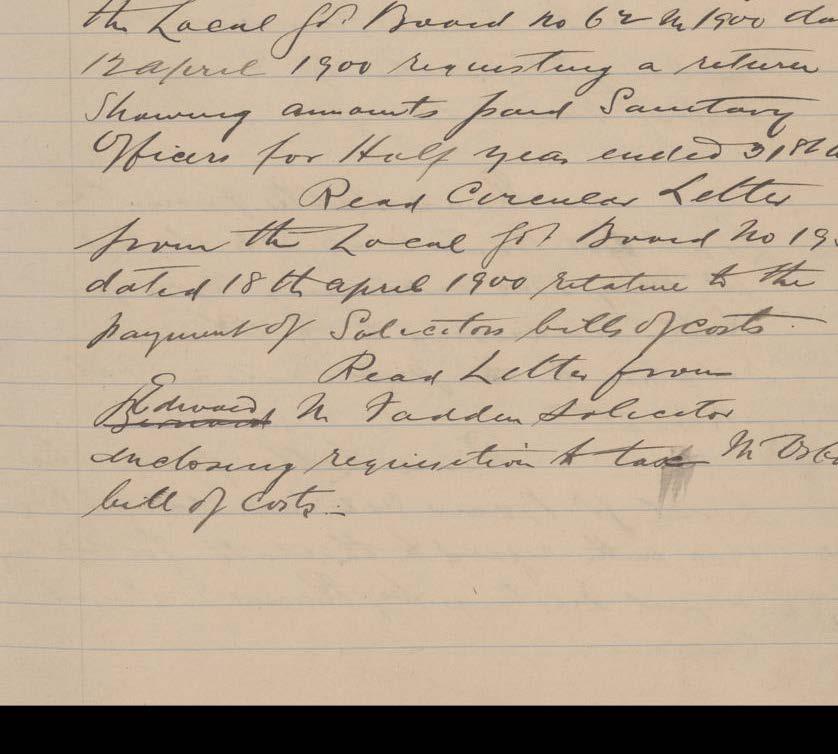 the Local Govt Board No 62 M 1900
12 April 1900 requesting a return
Showing amounts paid Sanitary
Officers for Half year ended 31st
Read Circular Letter
from the Local Govt Board No 19
dated 18th April 1900 relative to the
payment of Solicitors bills of costs
Read Letter from
Edward
Bernard M Fadden Solicitor
enclosing requisition to tax Mr
bill of costs.